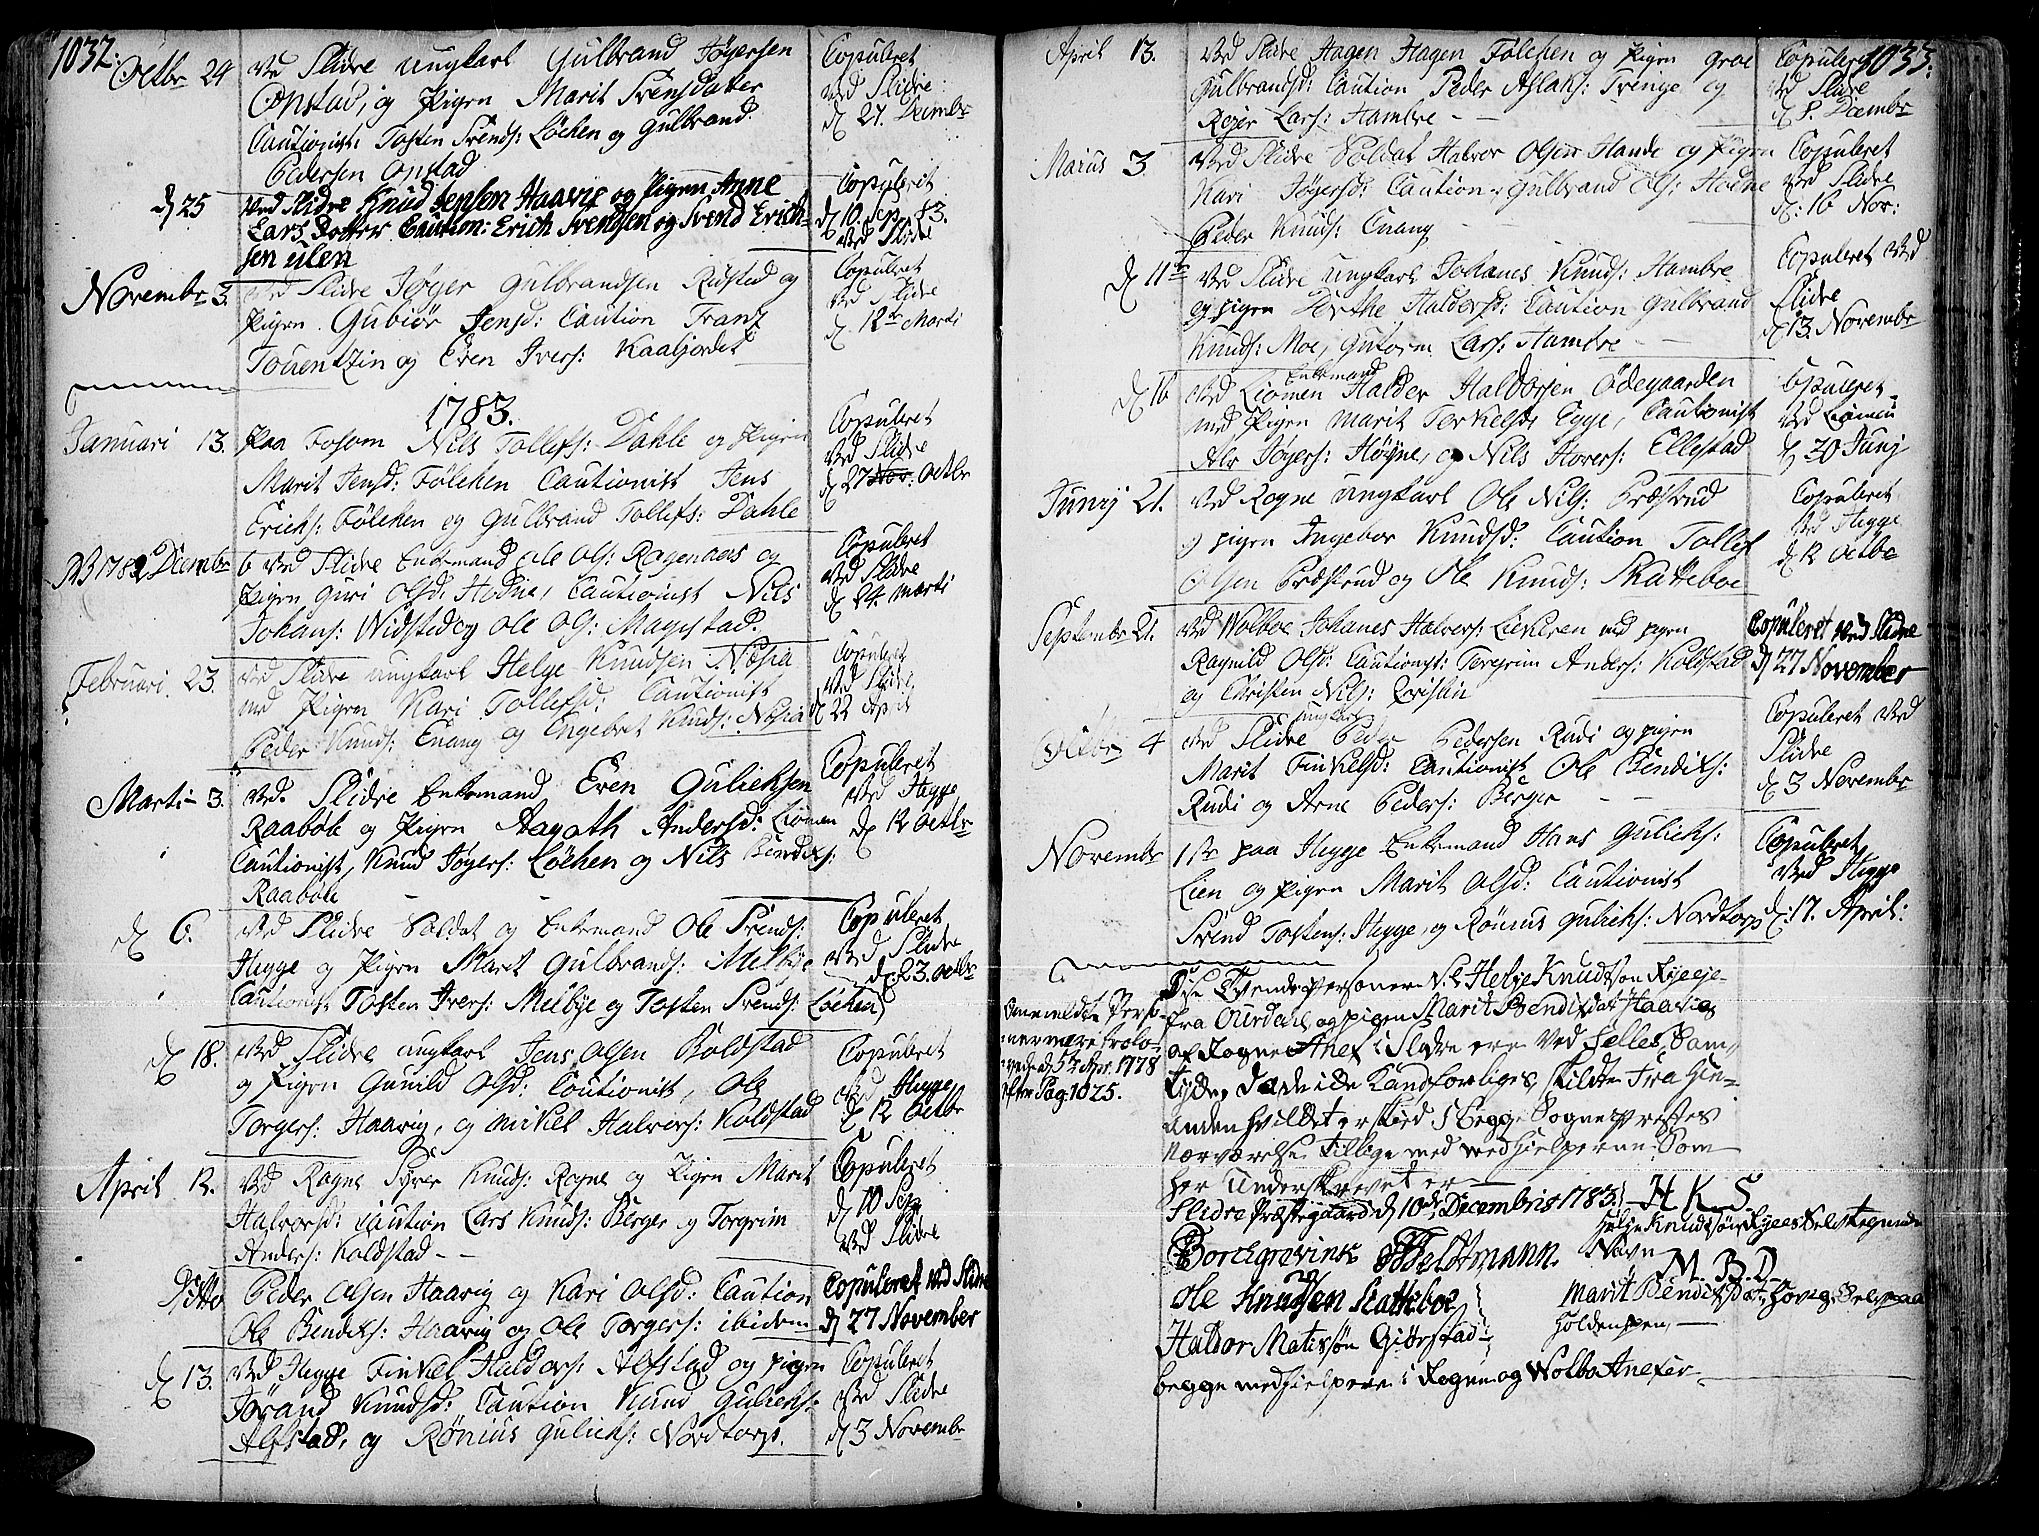 1032.
Octbr 24
Ved Slidre ungkarl Gulbrand Jøgersen
Opstad, og Pigen Marit Svensdatter
Cautionist: Tosten Svends: Løchen og Gulbrand
Pedersen Opstad
Copuleret
ved Slidre
d 27. Decmbr
d 25
Ved Slidre Knud Jensen Haavig og Pigen Anne
Lars Dotter Caution: Erich Svendsen og Svend Erich-
sen ulen
Copulerit
d 10. Sep. 83.
ved Slidre
Novembr 3.
Ved Slidre Jøger Gulbrandsen Ridsted og
Pigen Gubiør Jensd: Caution Franz
Touentzin og Even Ivers: Kaaljordet
Copuleret
ved Slidre
d. 12te Marti
1783.
Januari 13.
paa Fosom Nils Tollefs: Dahle og Pigen
Marit Jensd: Følchen Cautionist Jens
Erichs: Følchen og Gulbrand Tollefs: Dahle
Copuleret
ved Slidre
d 27 Nov: Octbr
NB 1782 Decmbr
6 ved Slidre Enkemand Ole Ols: Rogenaes og
Pigen Guri Olsd: Hodne, Cautionist Nils
Johans: Widsted og Ole Ols: Magistad.
Copuleret
ved Slidre
d 24. Marti
Februari 23.
ved Slidre ungkarl Helge Knudsen Næsia
med Pigen Kari Tollefsd: Cautionist
Peder Knuds: Enang og Engebret Knuds: Næsia
Copuleret
ved Slidre
d 22 April
Marti 3.
ved. Slidre Enkemand Even Gulichsen
Raabøle og Pigen Aagoth Andersd: Liomen
Cautionist, Knud Jøgers: Løchen og Nils Bendix:
Raabøle
Copuleret
ved Hegge
d 12 Octbr
d 6.
Ved Slidre Soldat og Enkemand Ole Svends:
Hegge og Pigen Marit Gulbrands: Melbye
Cautionist Tosten Ivers: Melbye og Tosten Svends: Løchen
Copuleret
ved Slidre
d 23. octbr
d 18.
Ved Slidre ungkarl Jens Olsen Boldstad
og Pigen Gunild Olsd: Cautionist, Ole
Torgers: Haavig, og Mickel Halvors: Koldstad
Copuleret
ved Hegge
d 12 Octbr
April 12.
Ved Rogne Syver Knuds: Rogne og Pigen Marit
Halvorsd: Caution Lars Knuds: Berger og Torgrim
Anders: Koldstad
Copuleret
d 10 Sep
ved Slidre
Ditto
Peder Olsen Haavig og Kari Olsd: Caution
Ole Bendix: Haavig og Ole Torgers: ibidem
Copuleret ved Slidre
d 27 November
d 13.
ved Hegge Finkel Haldors: Alfstad og Pigen
Jørand Knudsd: Caution Knud Gulichs:
Alfstad, og Rønius Gulichs: Nordtorp.
Copuleret
ved Slidre
d 3 Novembr
1033.
April 13.
Ved Slidre Hagen Hagen Følchen og Pigen Groe
Gulbrandsd: Caution Peder Aslaks: Trenge og
Rejer Lars: Hambre
Copuleret
ved Slidre
d 8. Decmbr
Maius 3
Ved Slidre Soldat Halvor Olsen Hande og Pigen
Kari Jøgersd: Caution, Gulbrand Ols: Hodne
Peder Knuds: Enang
Copuleret
ved Slidre
d: 16 Nov:
d 11te
Ved Slidre ungkarl Johanes Knuds: Hambre
og pigen Dorthe Haldorsd: Caution Gulbrand
Knuds: Moe, Gutorm Lars: Hambre
Copuleret ved
Slidre
d 13. Novembr
d 16
Ved Liomen Enkemand Haldor Haldorsen Ødegaarden
med Pigen Marit Torkelsd: Egge, Cautionist
Ole Jøgers: Høyne, og Nils Hovers: Ellestad
Copuleret
ved Liomen
d 20 Junij
Junij 21.
ved Rogne ungkarl Ole Nils: Præstrud
og pigen Ingebor Knudsd: Caution Tollef
Olsen Præstrud og Ole Knuds: Skatteboe
Copuleret
ved Hegge
d 12 octbr
Septembr 21.
ved Wolboe Johanes Halvors: Liekren med pigen
Ragnild Olsd: Cautionist: Toregrim Anders: Koldstad
og Christen Nils: Qvistin
Copuleret ved Slidre
d 27 November
Octbr 4
ved Slidre ungkarl Peder Pedersen Rudi og pigen
Marit Finkelsd: Cautionist Ole Bendix:
Rudi og Arne Peders: Berger
Copuleret ved
Slidre
d 3 Novembr
Novembr
1ste paa Hegge Enkemand Hans Gulichs:
Lien og pigen Marit Olsd: Cautionist
Svend Tostens: Hegge, og Rønius Gulichs: Nordtorp
Copuleret
ved Hegge
d: 17. April:
Benemeldte Perso-
ner vare trolo-
vede d 5te Apr. 1778
efter Pag: 1025.
Disse Tvende Personer Nl: Helge Knudtsøn Ryeeje
fra Ourdahl, og pigen Marit Bendixdat: Haavig
af Rogne Anex i Slidre ere ved felles Sam-
tycke, da de icke kand forliges, skildte fra hin-
anden hvilket er skeed i Begge Sogneprestes
nærværelse tillige med medhielperne Som
her Underskrevet er
Slidre Præstegaard d 10de Decembris 1783.
H. K. S.
Helge Knudtsøn Ryees Selvtegnede
Navn
Borchgrevink Beldtmann.
M. B. D.
Ole Knudsen Skatteboe
Marit Bendixdat: Hovig Selv paa
holden pen,
Haldor Matisøn Giørstad
begge medhielpere i Rogne og Wolbo Anexer